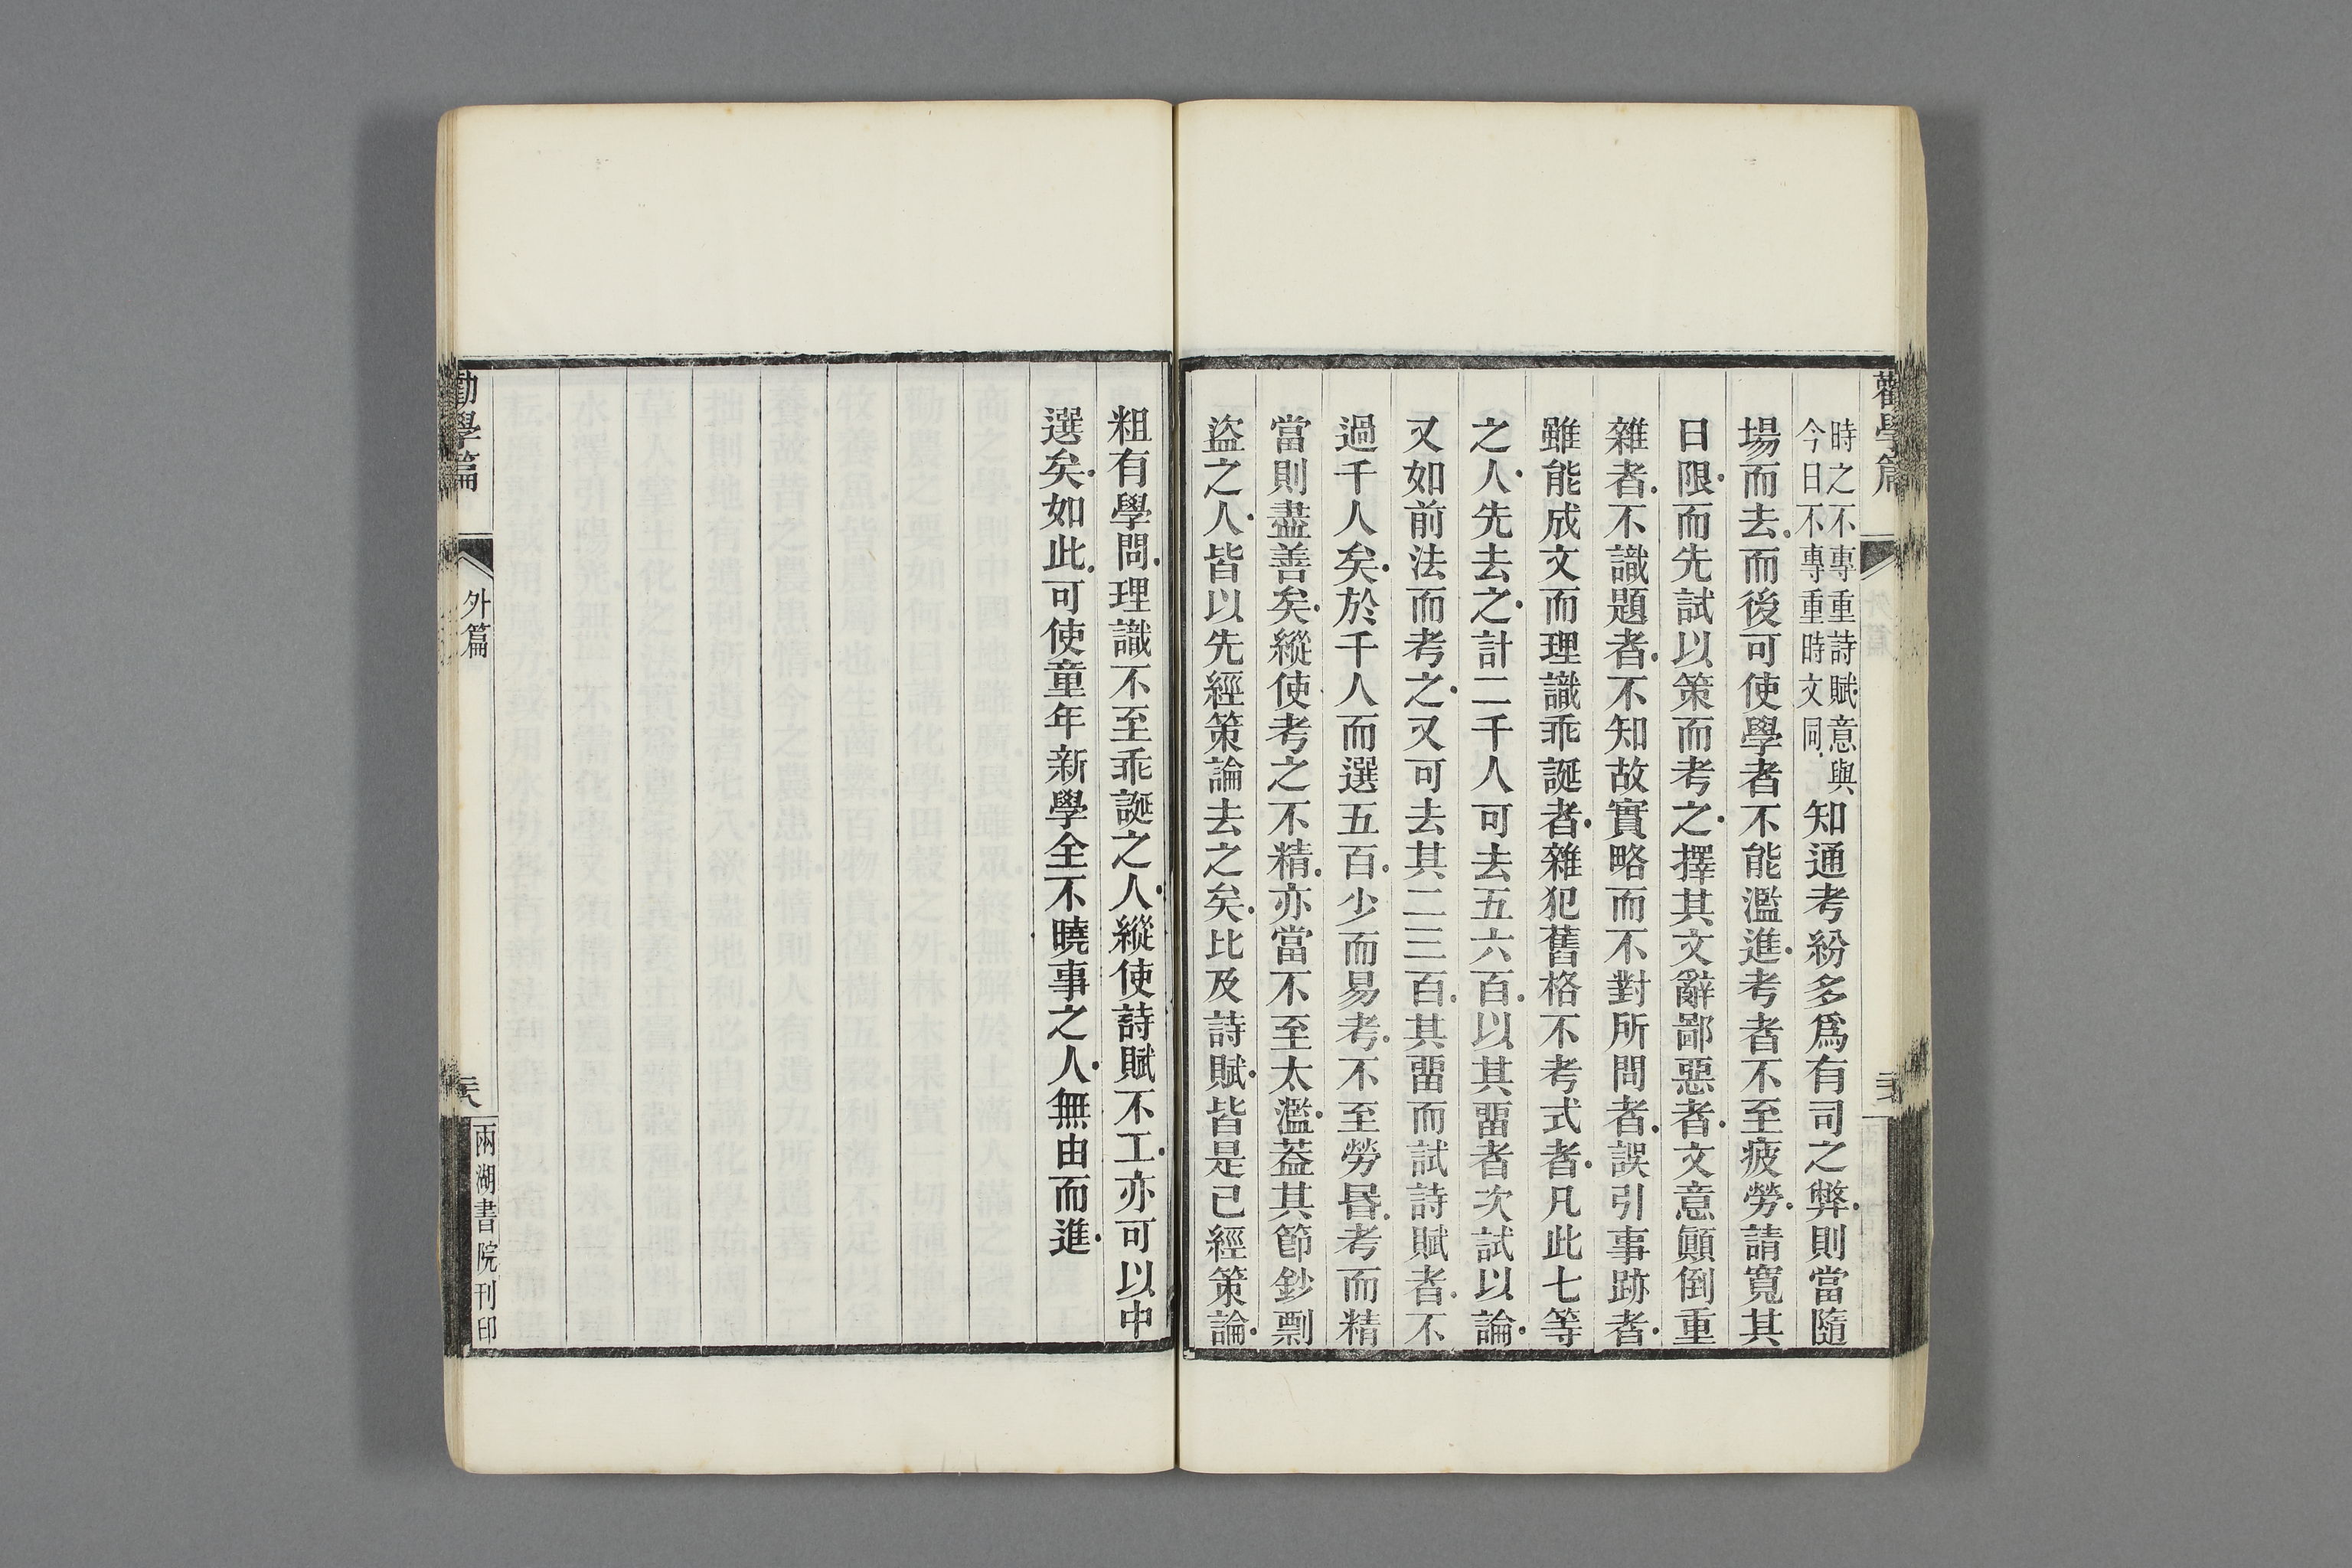 勸學篇
時之不專重詩賦意與
今日不專重時文同
知通考紛多爲有司之弊則當隨
場而去而後可使學者不能濫進考者不至疲勞請寬其
日限而先試以策而考之擇其文辭鄙惡者文意顚倒重
雜者不識題者不知故實略而不對所問者誤引事跡者
雖能成文而理識乖誕者雜犯舊格不考式者凡此七等
之人先去之計二千人可去五六百以其畱者次試以論
又如前法而考之又可去其二三百其畱而試詩賦者不
過千人矣於千人而選五百少而易考不至勞昬考而精
當則盡善矣縱使考之不精亦當不至太濫蓋其節鈔剽
盜之人皆以先經策論去之矣比及詩賦皆是已經策論
粗有學問理識不至乖誕之人縱使詩賦不工亦可以中
選矣如此可使童年新學全不曉事之人無由而進
勸學篇
外篇
兩湖書院刊印